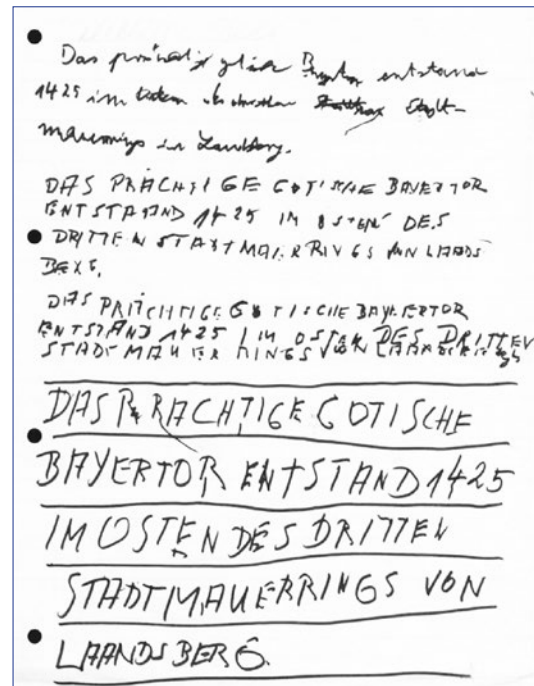 Das prächtig gotische Bayertor entstand
1425 im Osten des dritten Stadt-
mauerrings in Landsberg.
DAS PRÄCHTIGE GOTISCHE BAYERTOR
ENTSTAND 1425 IM OSTEN DES
DRITTEN STADTMAUERRINGS VON LANDS
BERG.
DAS PRÄCHTIGE GOTISCHE BAYERTOR
ENTSTAND 1425 IM OSTEN DES DRITTEN
STADTMAUERRINGS VON
DAS PRACHTIGE GOTISCHE
BAYERTOR ENTSTAND 1425
IM OSTEN DES DRITTEN
STADTMAUERRINGS VON
LAANDSBERG.